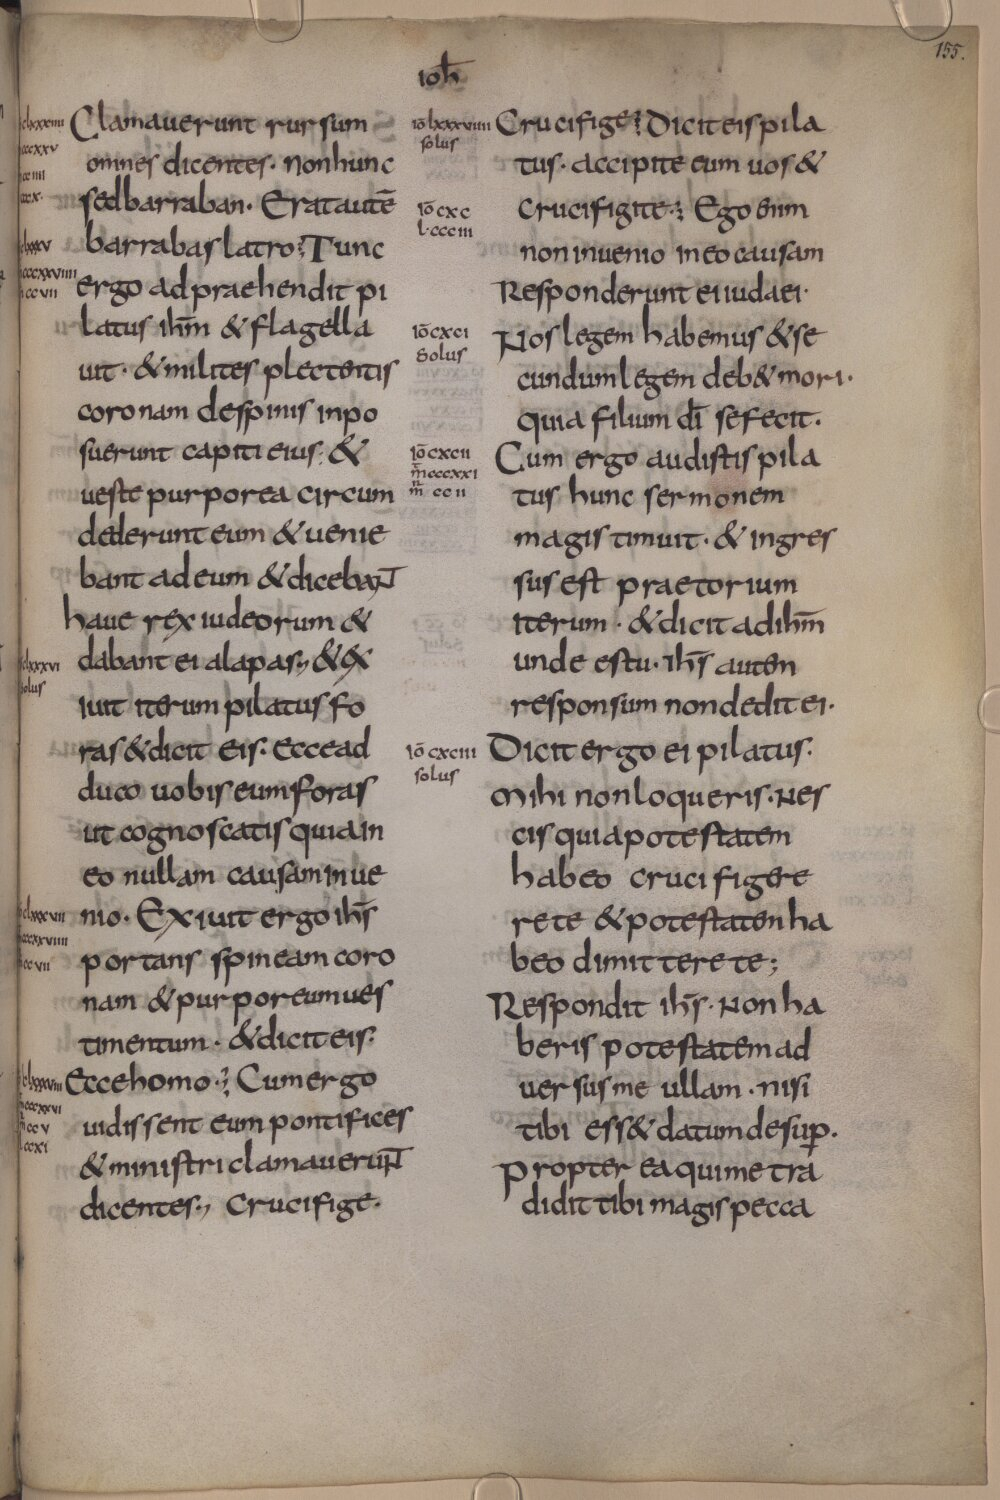 155.
ioħ
Clamauerunt rursum
omnes dicentes. non hunc
sed barraban. Erat autē
barrabas latro; Tunc
ergo adpraehendit pi
latus ihm̄ & flagella
uit. & milites plectentis
coronam despinis inpo
suerunt capiti eius. &
ueste purporea circum
dederunt eum & uenie
bant ad eum & dicebant
haue rex iudeorum &
dabant ei alapas; & ex
iuit iterum pilatus fo
ras & dicit eis. Ecce ad
duco uobis eum foras
ut cognoscatis quia in
eo nullam causam inue
nio. Exiuit ergo ihs̄
portans spineam coro
nam & purporeum ues
timentum. & dicit eis.
Ecce homo; Cum ergo
uidissent eum pontifices
& ministri clamauerunt
dicentes; Crucifige.
iō lxxxviiii
solus
iō cxc
l. ccciii
iō cxci
solus
iō cxcii
m̄ cccxxi
m̄ ccii
iō cxciii
solus
Crucifige; Dicit eis pila
tus. accipite eum uos &
crucifigite; Ego enim
non inuenio in eo causam
Responderunt ei iudaei.
Nos legem habemus & se
cundum legem deb& mori.
quia filium dī se fecit.
Cum ergo audistis pila
tus hunc sermonem
magis timuit. & ingres
sus est praetorium
iterum. & dicit ad ihm̄
unde es tu. ihs̄ autem
responsum non dedit ei.
Dicit ergo ei pilatus.
Mihi non loqueris. Nes
cis quia potestatem
habeo crucifigere
rete & potestatem ha
beo dimitterete;
Respondit ihs̄. Non ha
beris potestatem ad
uersus me ullam. nisi
tibi ess& datum desup̱.
propter ea qui me tra
didit tibi magis pecca